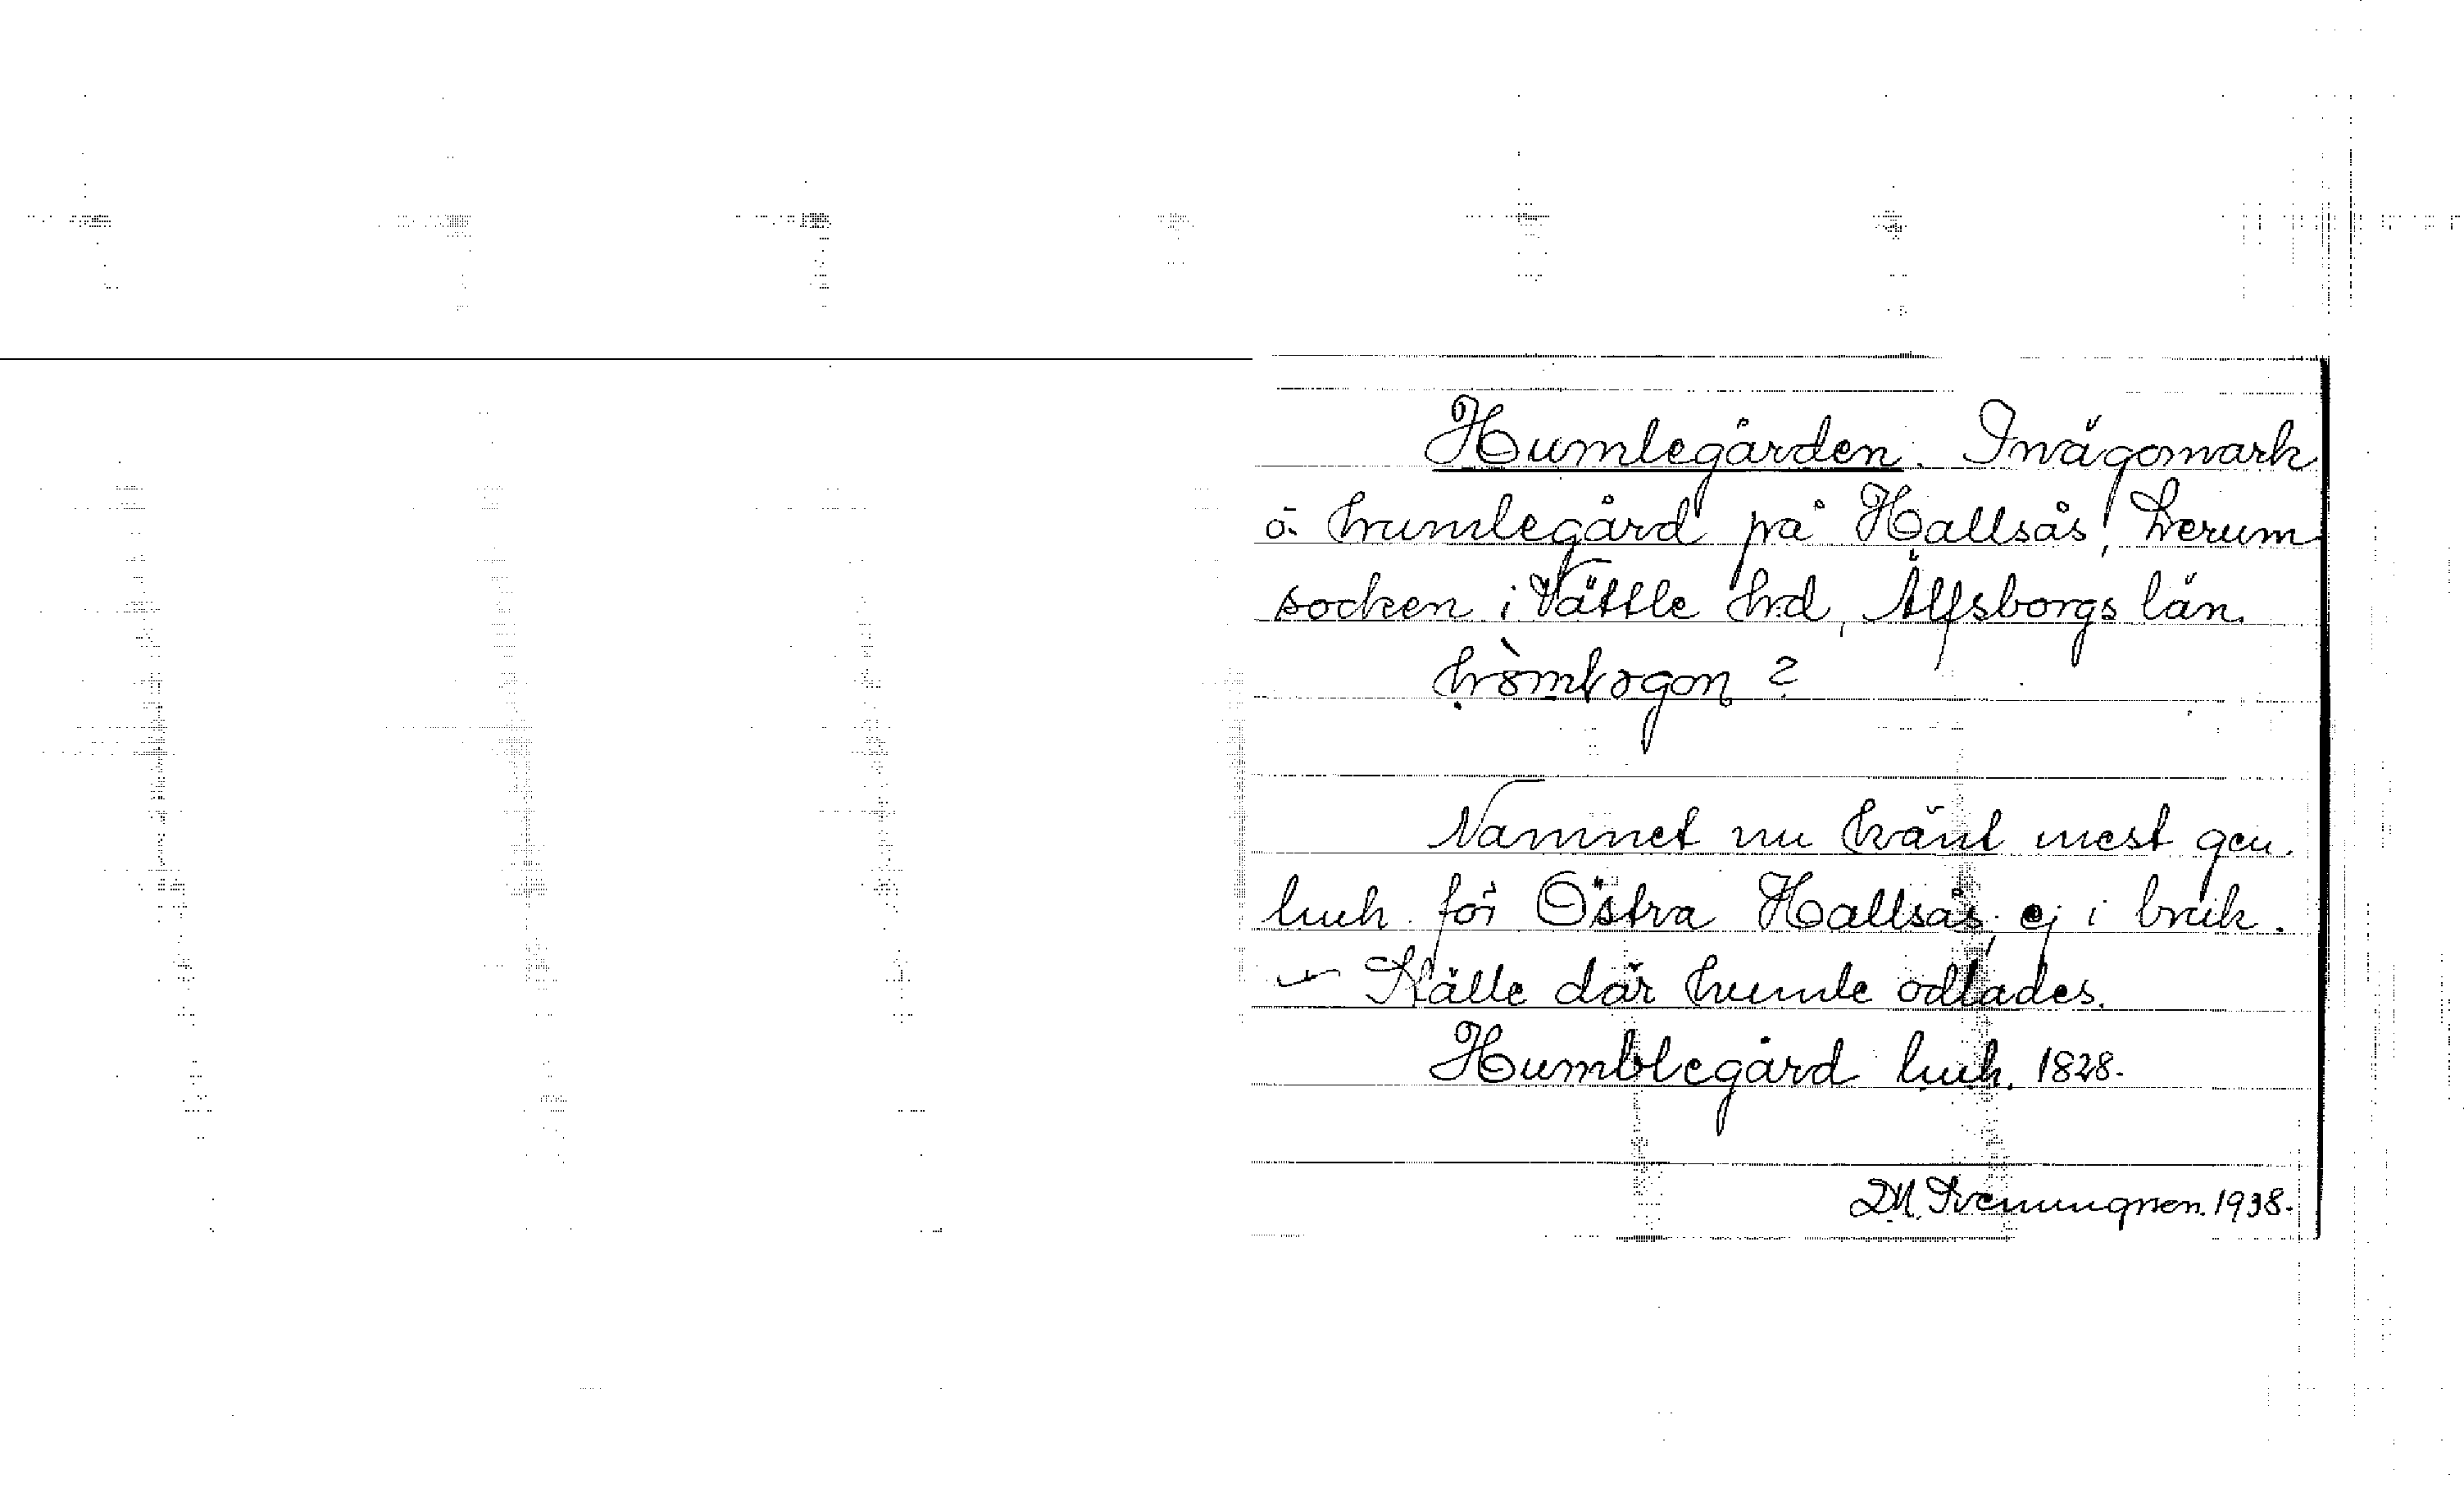 Humlegården. Inägomark
o. humlegård på Hallsås, Lerum
socken i Vättle hrd, Älfsborgs län.
Namnet nu känt mest gen.
luh för Östra Hallsås, ej i bruk.
— Ställe där humle odlades.
Humblegård luh. 1828.
D.M. Svenungsson. 1938.